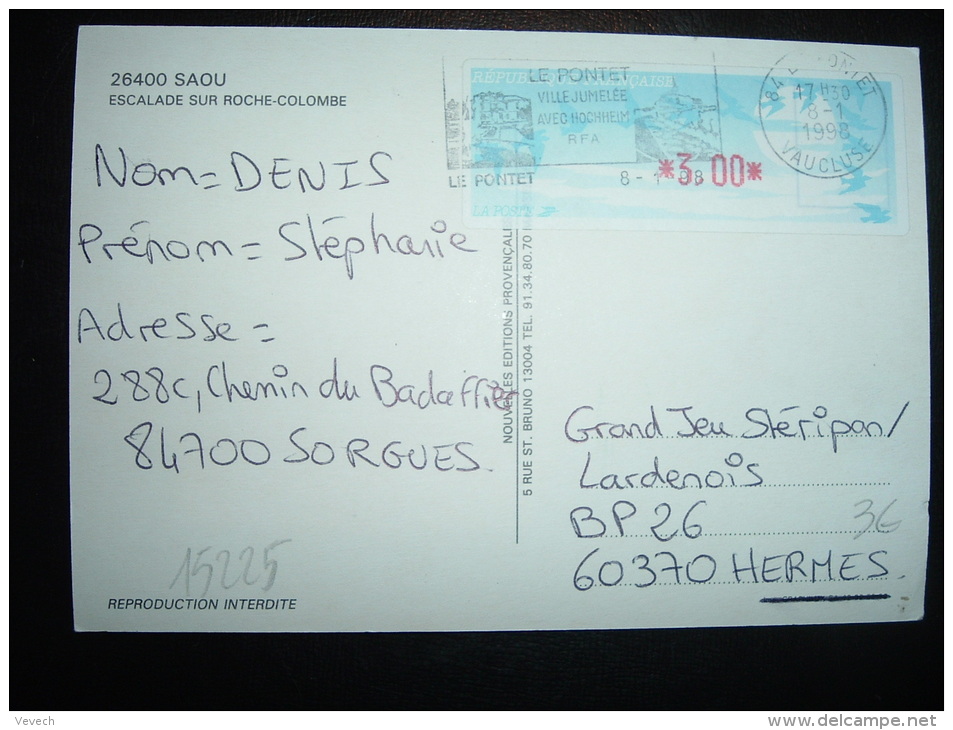 26400 SAOU
ESCALADE SUR ROCHE-COLOMBE
Nom = DENIS
Prénom = Stéphanie
Adresse =
288c, Chemin du Badaffier
84700 SORGUES.
15225
REPRODUCTION INTERDITE
NOUVELLES EDITIONS PROVENÇAL
5 RUE ST. BRUNO 13004 TEL. 91.34.80.70
RÉPUBLIQUE FRANÇAISE
LE PONTET
VILLE JUMELÉE
AVEC HOCHHEIM
RFA
LE PONTET
8-1 98
*3,00*
LA POSTE
84 LE PONTET
17H30
8-1
1998
VAUCLUSE
Grand Jeu Stéripan/
Lardenois
BP 26
36
60370 HERMES.
Vevech
delcampe.net